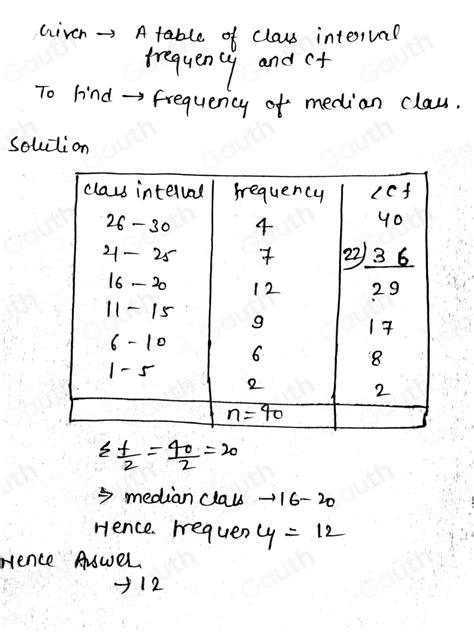 Given → A table of class interval
frequency and cf
To find → frequency of median class.
Solution
class interval frequency <cf
26 - 30 4 40
21 - 25 7 22) 36
16 - 20 12 29
11 - 15 9 17
6 - 10 6 8
1 - 5 2 2
n = 40
Σ f/2 = 40/2 = 20
⇒ median class → 16 - 20
Hence frequency = 12
Hence Answer
→ 12